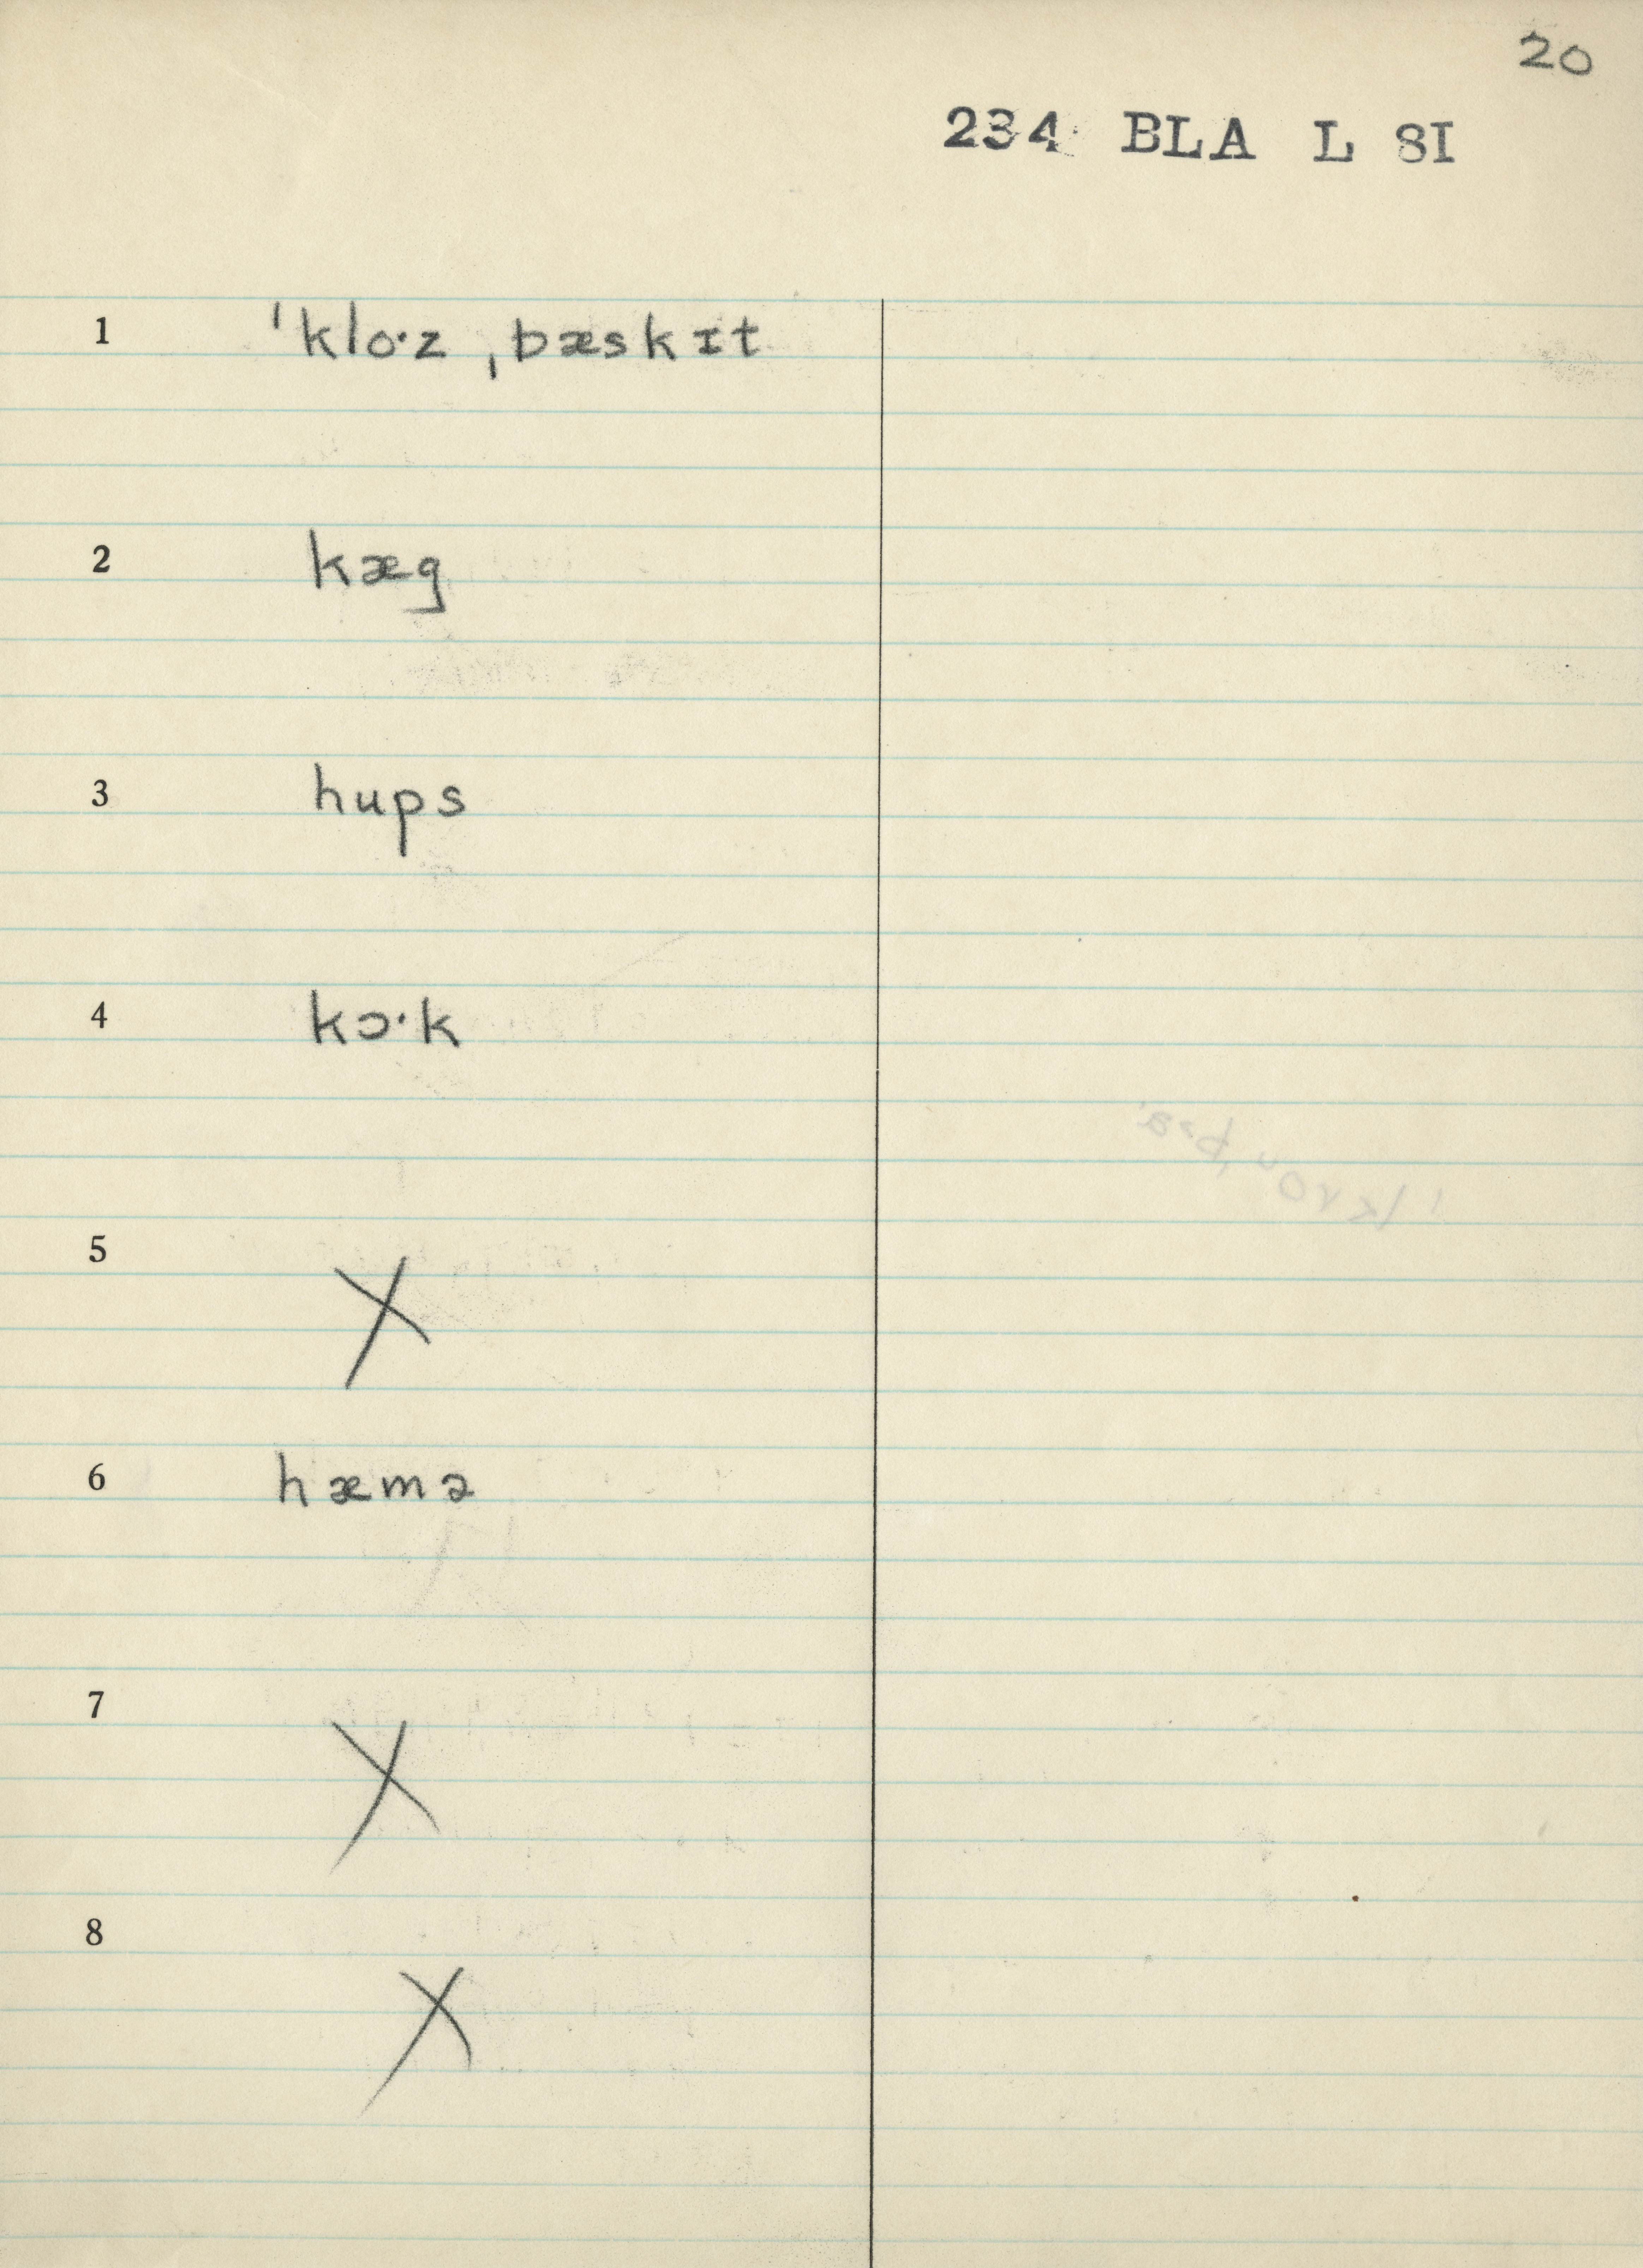 20
234 BLA L 8I
1 ˈkloˑz ˌbæskɪt
2 kæg
3 hups
4 kɔˑk
5 X
6 hæmə
7 X
8 X